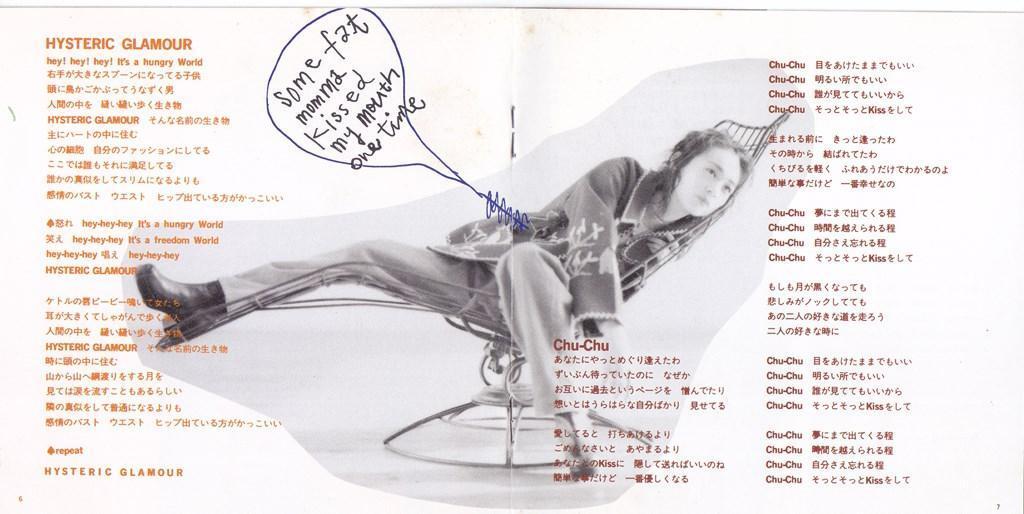 HYSTERIC GLAMOUR
hey! hey! hey! It's a hungry World
右手が大きなスプーンになってる子供
頭に鳥かごかぶってうなずく男
人間の中を 縫い縫い歩く生き物
HYSTERIC GLAMOUR そんな名前の生き物
主にハートの中に住む
心の細胞 自分のファッションにしてる
ここでは誰もそれに満足してる
誰かの真似をしてスリムになるよりも
感情のバスト ウエスト ヒップ出ている方がかっこいい
♠怒れ hey-hey-hey It's a hungry World
笑え hey-hey-hey It's a freedom World
hey-hey-hey 唱え hey-hey-hey
HYSTERIC GLAMOUR
ケトルの唇ピーピー鳴いて女たち
耳が大きくてしゃがんで歩く
人間の中を 縫い縫い歩く生き物
HYSTERIC GLAMOUR そんな名前の生き物
時に頭の中に住む
山から山へ綱渡りをする月を
見ては涙を流すこともあるらしい
隣の真似をして普通になるよりも
感情のバスト ウエスト ヒップ出ている方がかっこいい
♠repeat
HYSTERIC GLAMOUR
6
some fat
momma
kissed
my mouth
one time
Chu-Chu
あなたにやっとめぐり逢えたわ
ずいぶん待っていたのに なぜか
お互いに過去というページを 憎んでたり
想いとはうらはらな自分ばかり 見せてる
愛してると 打ちあけるより
ごめんなさいと あやまるより
あなたとのKissに 隠して送ればいいのね
簡単な事だけど 一番優しくなる
Chu-Chu 目をあけたままでもいい
Chu-Chu 明るい所でもいい
Chu-Chu 誰が見ててもいいから
Chu-Chu そっとそっとKissをして
生まれる前に きっと逢ったわ
その時から 結ばれてたわ
くちびるを軽く ふれあうだけでわかるのよ
簡単な事だけど 一番幸せなの
Chu-Chu 夢にまで出てくる程
Chu-Chu 時間を越えられる程
Chu-Chu 自分さえ忘れる程
Chu-Chu そっとそっとKissをして
もしも月が黒くなっても
悲しみがノックしてても
あの二人の好きな道を走ろう
二人の好きな時に
Chu-Chu 目をあけたままでもいい
Chu-Chu 明るい所でもいい
Chu-Chu 誰が見ててもいいから
Chu-Chu そっとそっとKissをして
Chu-Chu 夢にまで出てくる程
Chu-Chu 時間を越えられる程
Chu-Chu 自分さえ忘れる程
Chu-Chu そっとそっとKissをして
7